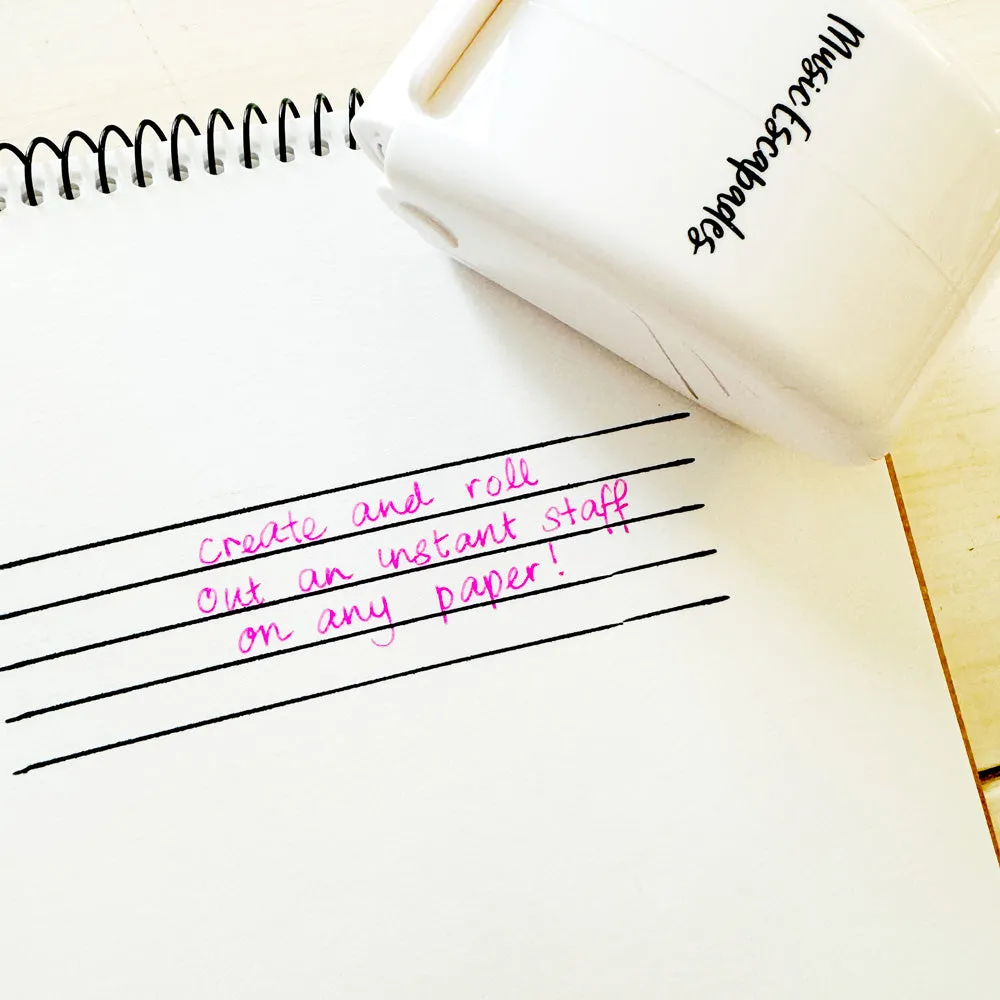 MusicEscapades
create and roll
out an instant staff
on any paper!